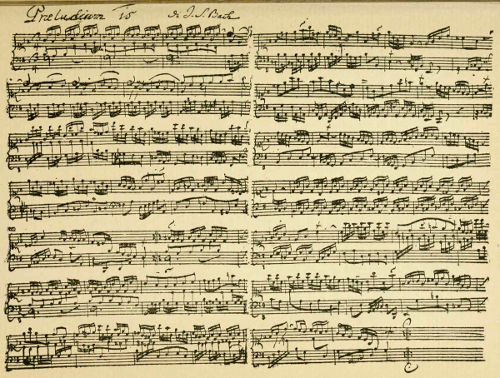 Præludium 15 di J. S. Bach